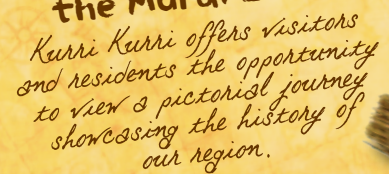 the
Kurri Kurri offers visitors
and residents the opportunity
to view a pictorial journey
showcasing the history of
our region.